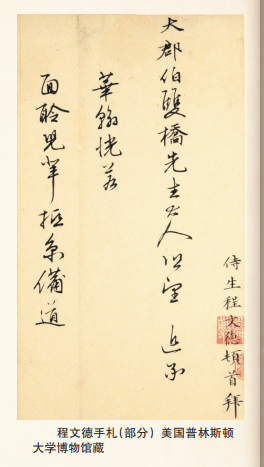 侍生程文德頓首拜
大郡伯雙橋先生大人 近承
華翰恍若
面聆兒輩 備道
程文德手札(部分) 美国普林斯顿
大学博物馆藏